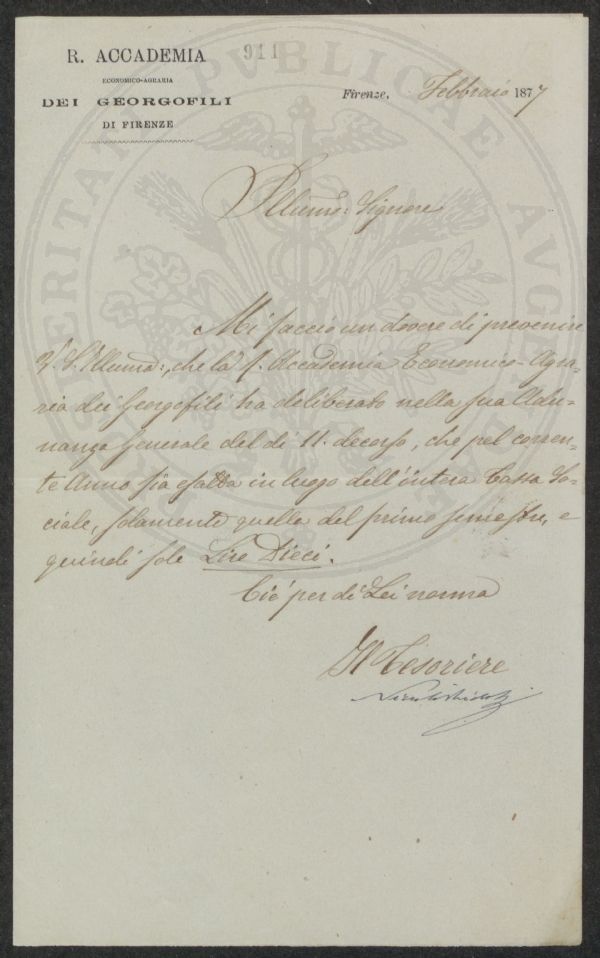 R. ACCADEMIA
ECONOMICO-AGRARIA
DEI GEORGOFILI
DI FIRENZE
911
Firenze, Febbraio 1877
PROSPERITATI PVBLICAE AVGENDAE
Illumo: Signore
Mi faccio un dovere di prevenire
V. S. Illuma:, che la R. Accademia Economico-Agra-
ria dei Georgofili ha deliberato nella sua Adu-
nanza Generale del dì 11. decorso, che pel corren-
te Anno sia esatta in luogo dell'intera Tassa So-
ciale, solamente quella del primo semestre, e
quindi sole Lire Dieci.
Ciò per di Lei norma
Il Tesoriere